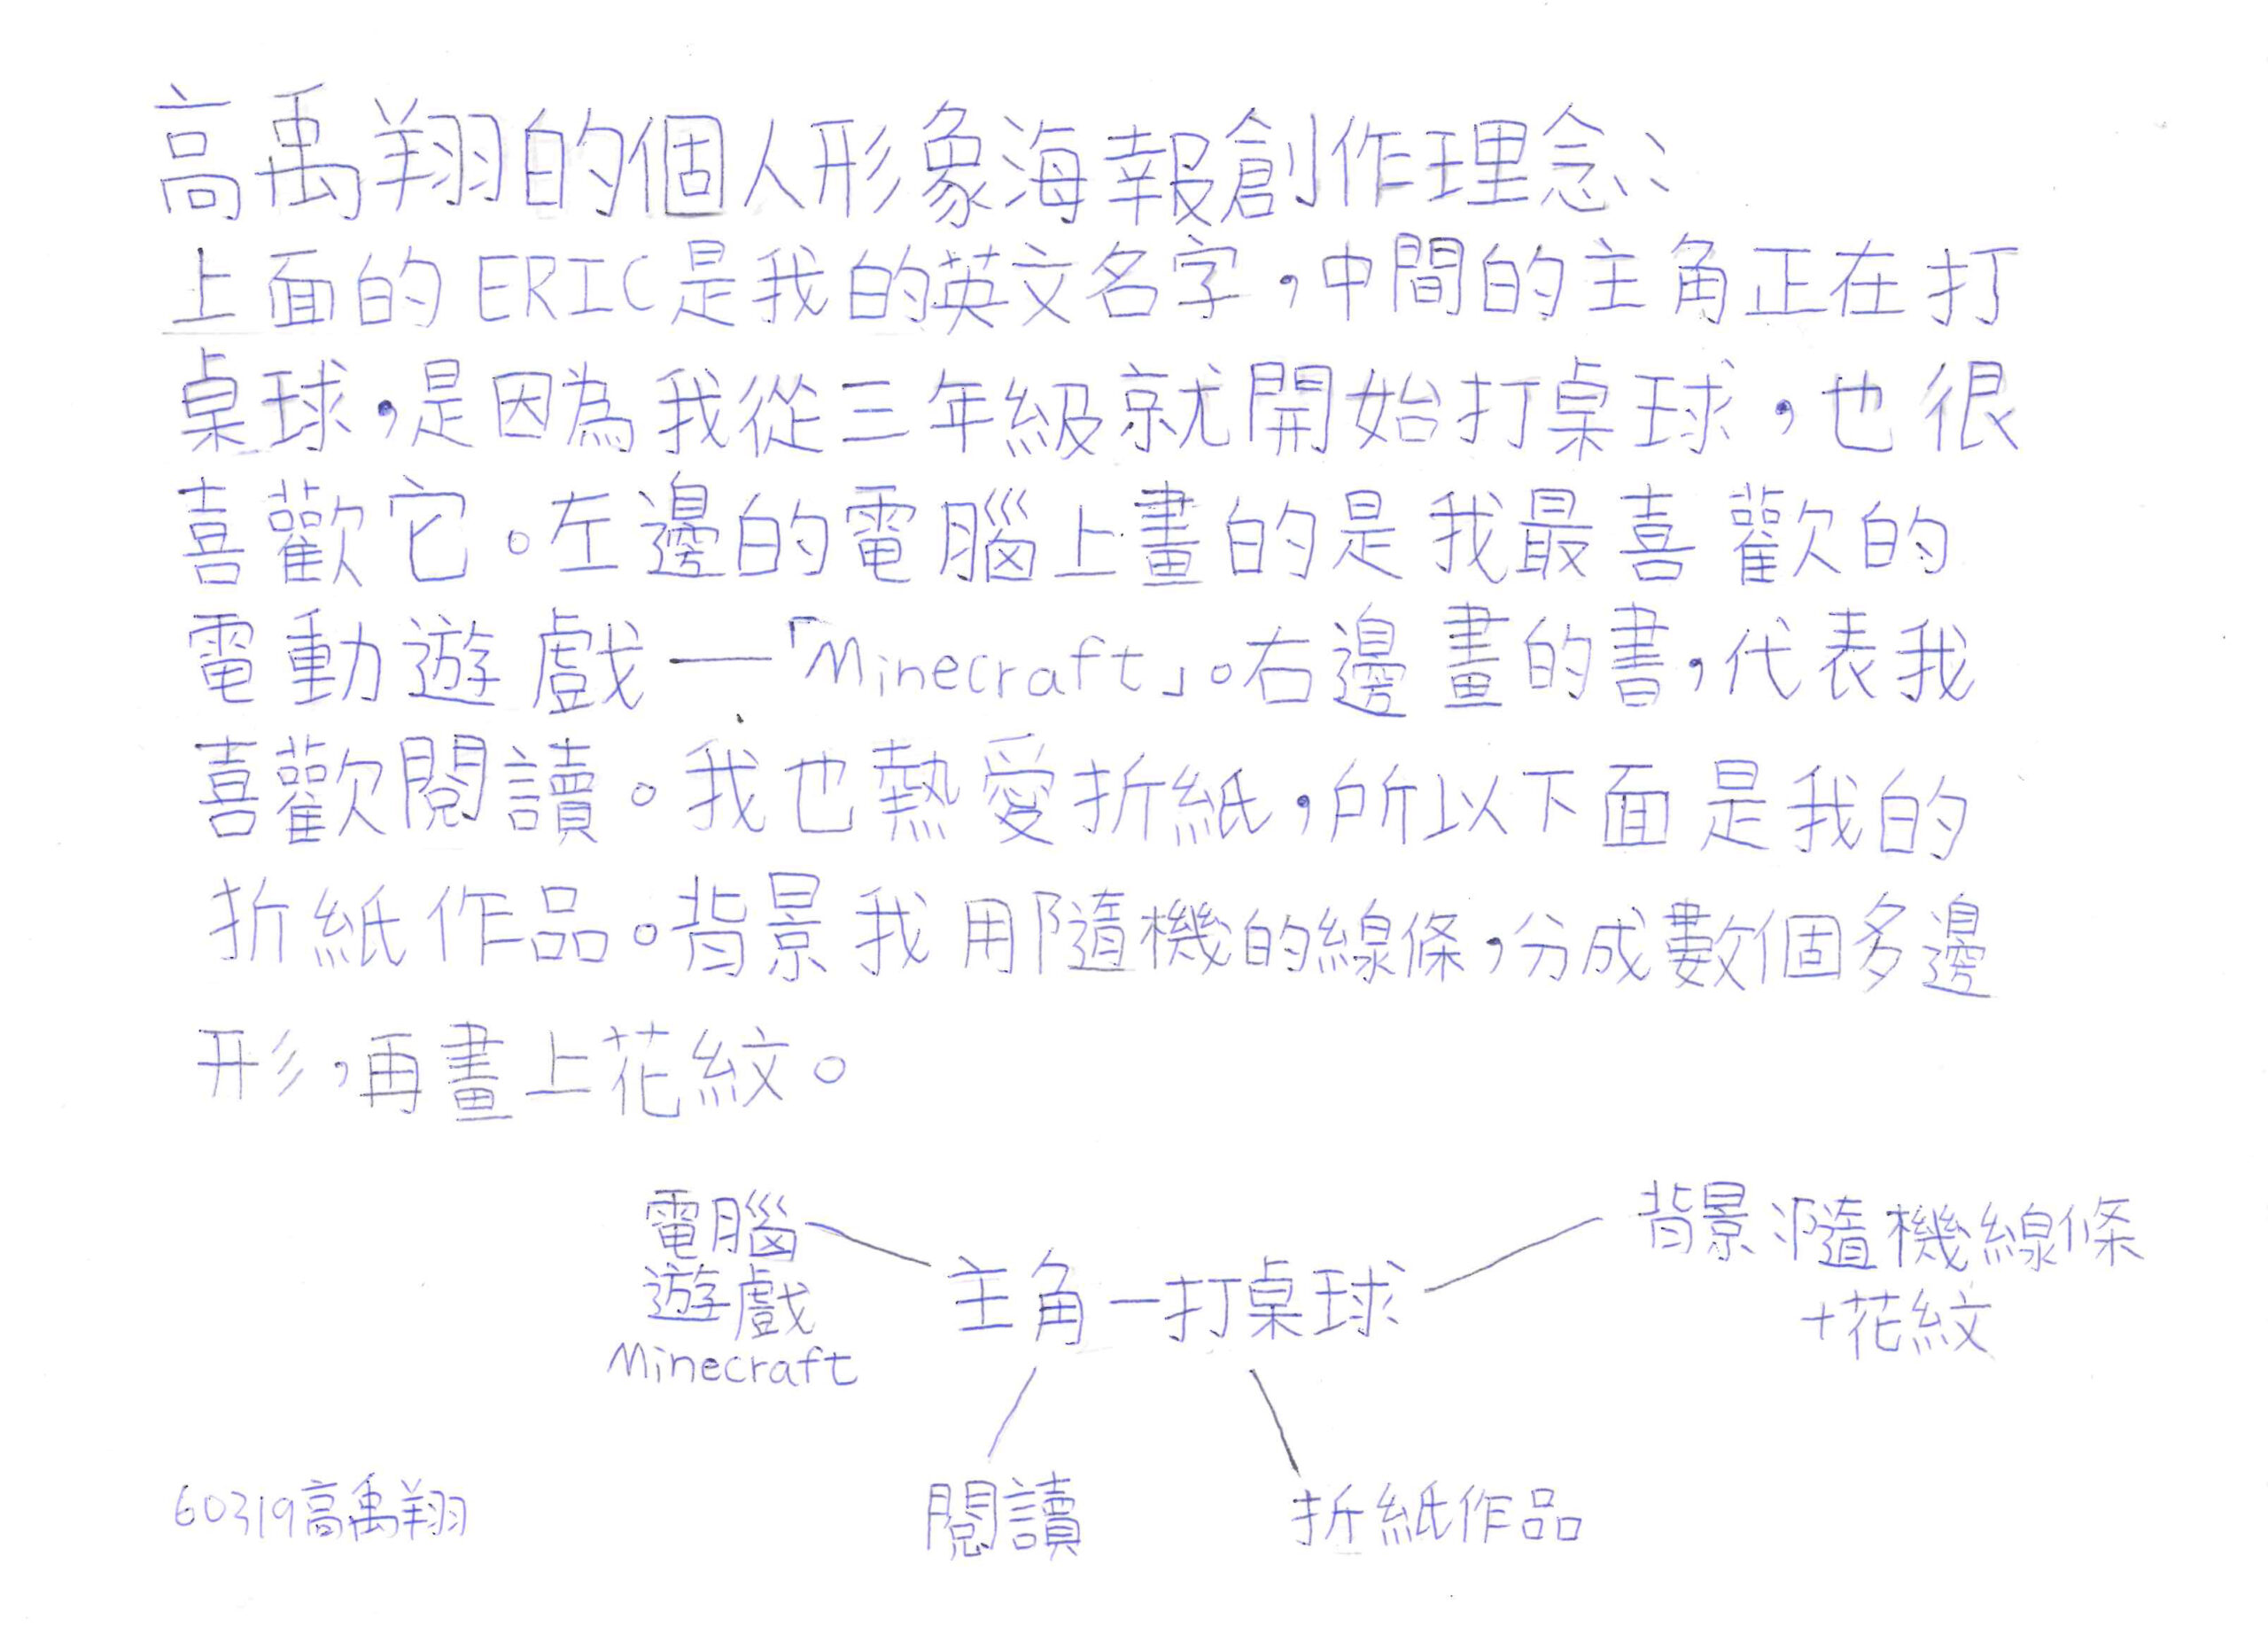 高禹翔的個人形象海報創作理念:
上面的ERIC是我的英文名字,中間的主角正在打
桌球,是因為我從三年級就開始打桌球,也很
喜歡它。左邊的電腦上畫的是我最喜歡的
電動遊戲—「Minecraft」。右邊畫的書,代表我
喜歡閱讀。我也熱愛折紙,所以下面是我的
折紙作品。背景我用隨機的線條,分成數個多邊
形,再畫上花紋。
電腦
遊戲
Minecraft
主角—打桌球
背景:隨機線條
+花紋
閱讀
折紙作品
60319高禹翔